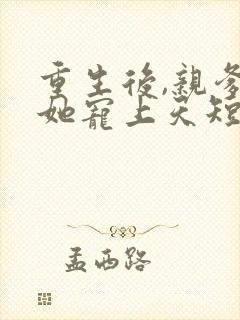 重生後,親爹
她寵上天短
孟西路